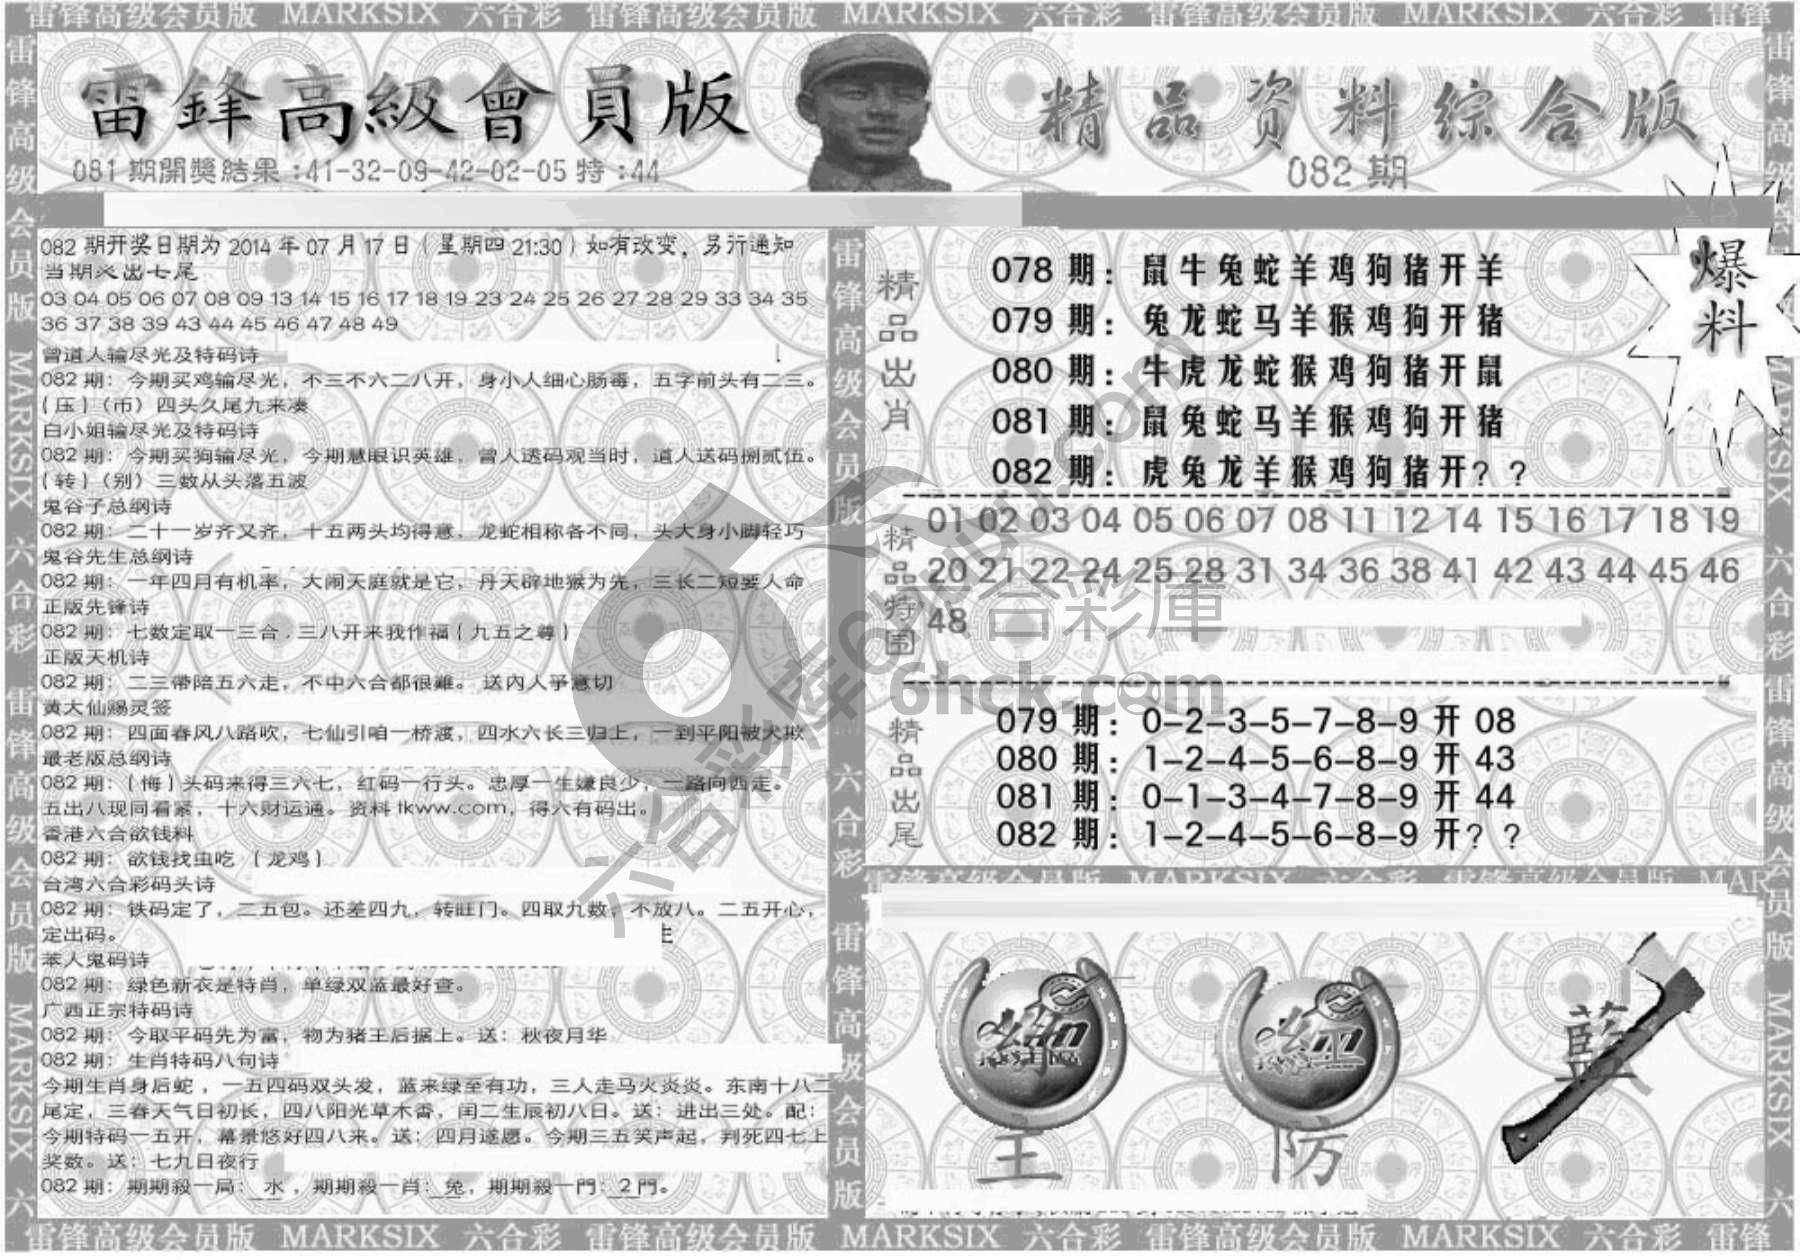 雷锋高级会员版 MARKSIX 六合彩 雷锋高级会员版 MARKSIX 六合彩 雷锋高级会员版 MARKSIX 六合彩 雷锋
雷鋒高級會員版
081期開獎結果:41-32-09-42-02-05特:44
精品资料综合版
082期
爆料
082期开奖日期为2014年07月17日(星期四21:30)如有改变，另行通知
当期必出七尾
03 04 05 06 07 08 09 13 14 15 16 17 18 19 23 24 25 26 27 28 29 33 34 35
36 37 38 39 43 44 45 46 47 48 49
曾道人输尽光及特码诗
082期：今期买鸡输尽光，不三不六二八开，身小人细心肠毒，五字前头有二三。
{压}（币）四头久尾九来凑
白小姐输尽光及特码诗
082期：今期买狗输尽光，今期慧眼识英雄，曾人透码观当时，道人送码捌贰伍。
{转}（别）三数从头落五波
鬼谷子总纲诗
082期：二十一岁齐又齐，十五两头均得意，龙蛇相称各不同，头大身小脚轻巧
鬼谷先生总纲诗
082期：一年四月有机率，大闹天庭就是它，丹天辟地猴为先，三长二短要人命
正版先锋诗
082期：七数定取一三合．三八开来我作福{九五之尊}
正版天机诗
082期：二三带陪五六走，不中六合都很难。送内人争意切
黄大仙赐灵签
082期：四面春风八路吹，七仙引咱一桥渡，四水六长三归上，一到平阳被犬欺
最老版总纲诗
082期：{悔}头码来得三六七，红码一行头。忠厚一生嫌良少，一路向西走。
五出八现同看紧，十六财运通。资料tkww.com，得六有码出。
香港六合欲钱料
082期：欲钱找虫吃 {龙鸡}
台湾六合彩码头诗
082期：铁码定了，二五包。还差四九，转旺门。四取九数，不放八。二五开心，
定出码。
苯人鬼码诗
082期：绿色新衣是特肖，单绿双蓝最好查。
广西正宗特码诗
082期：今取平码先为富，物为猪王后据上。送：秋夜月华
082期：生肖特码八句诗
今期生肖身后蛇，一五四码双头发，蓝来绿至有功，三人走马火炎炎。东南十八二
尾定，三春天气日初长，四八阳光草木香，闰二生辰初八日。送：进出三处。配：
今期特码一五开，幕景悠好四八来。送：四月遂愿。今期三五笑声起，判死四七上
奖数。送：七九日夜行
082期：期期殺一局：水，期期殺一肖：兔，期期殺一門：2門。
精品出肖
078期：鼠牛兔蛇羊鸡狗猪开羊
079期：兔龙蛇马羊猴鸡狗开猪
080期：牛虎龙蛇猴鸡狗猪开鼠
081期：鼠兔蛇马羊猴鸡狗开猪
082期：虎兔龙羊猴鸡狗猪开？？
精品特围
01 02 03 04 05 06 07 08 11 12 14 15 16 17 18 19
20 21 22 24 25 28 31 34 36 38 41 42 43 44 45 46
48
精品出尾
079期：0-2-3-5-7-8-9开08
080期：1-2-4-5-6-8-9开43
081期：0-1-3-4-7-8-9开44
082期：1-2-4-5-6-8-9开？？
王
防
藍
六合彩庫
6hck.com
雷锋高级会员版 MARKSIX 六合彩 雷锋高级会员版 MARKSIX 六合彩 雷锋高级会员版 MARKSIX 六合彩 雷锋